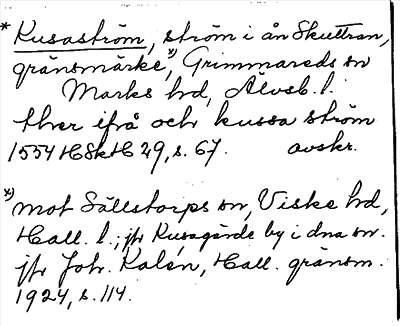 * Kusaström, ström i ån Skuttran,
gränsmärke x), Grimmareds sn
Marks hd, Älvsb. l.
ther ifrå och kussa ström
1554 HSkH 29, s. 67. avskr.
x) mot Sällstorps sn, Viske hd,
Hall. l.; jfr Kusagärde by i dna sn.
jfr Joh. Kalén, Hall. gränsm.
1924, s. 114.